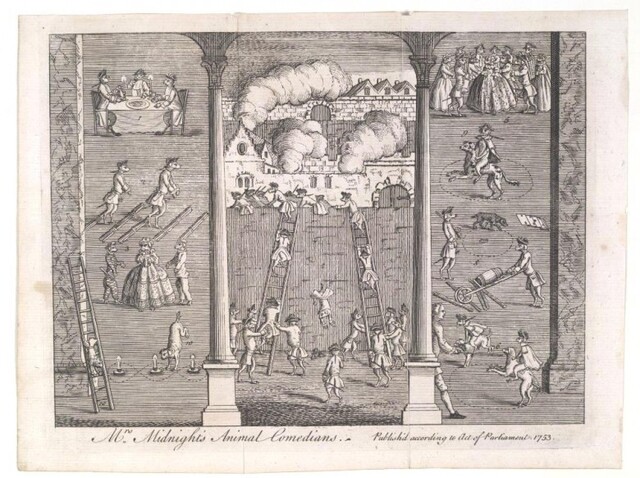 Mrs. Midnight's Animal Comedians. — Publish'd according to Act of Parliament. 1753.